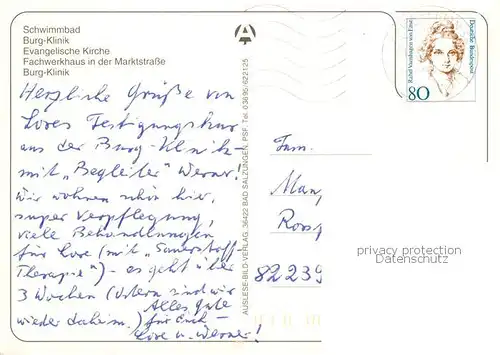 Schwimmbad
Burg-Klinik
Evangelische Kirche
Fachwerkhaus in der Marktstraße
Burg-Klinik
Herzliche Grüße von
Lores Festigungskur
aus der Burg-Klinik -
mit "Begleiter" Werner!
Wir wohnen schön hier,
super Verpflegung,
viele Behandlungen
für Lore (mit "Sauerstoff-
Therapie") - es geht über
3 Wochen (Ostern sind wir
wieder daheim.)
Alles Gute
für Euch -
Lore u. Werner!
AUSLESE-BILD-VERLAG, 36422 BAD SALZUNGEN, PSF, Tel. 03695/622125
Rahel Varnhagen von Ense
Deutsche Bundespost
80
Fam.
Man
Ross
82239
privacy protection
Datenschutz